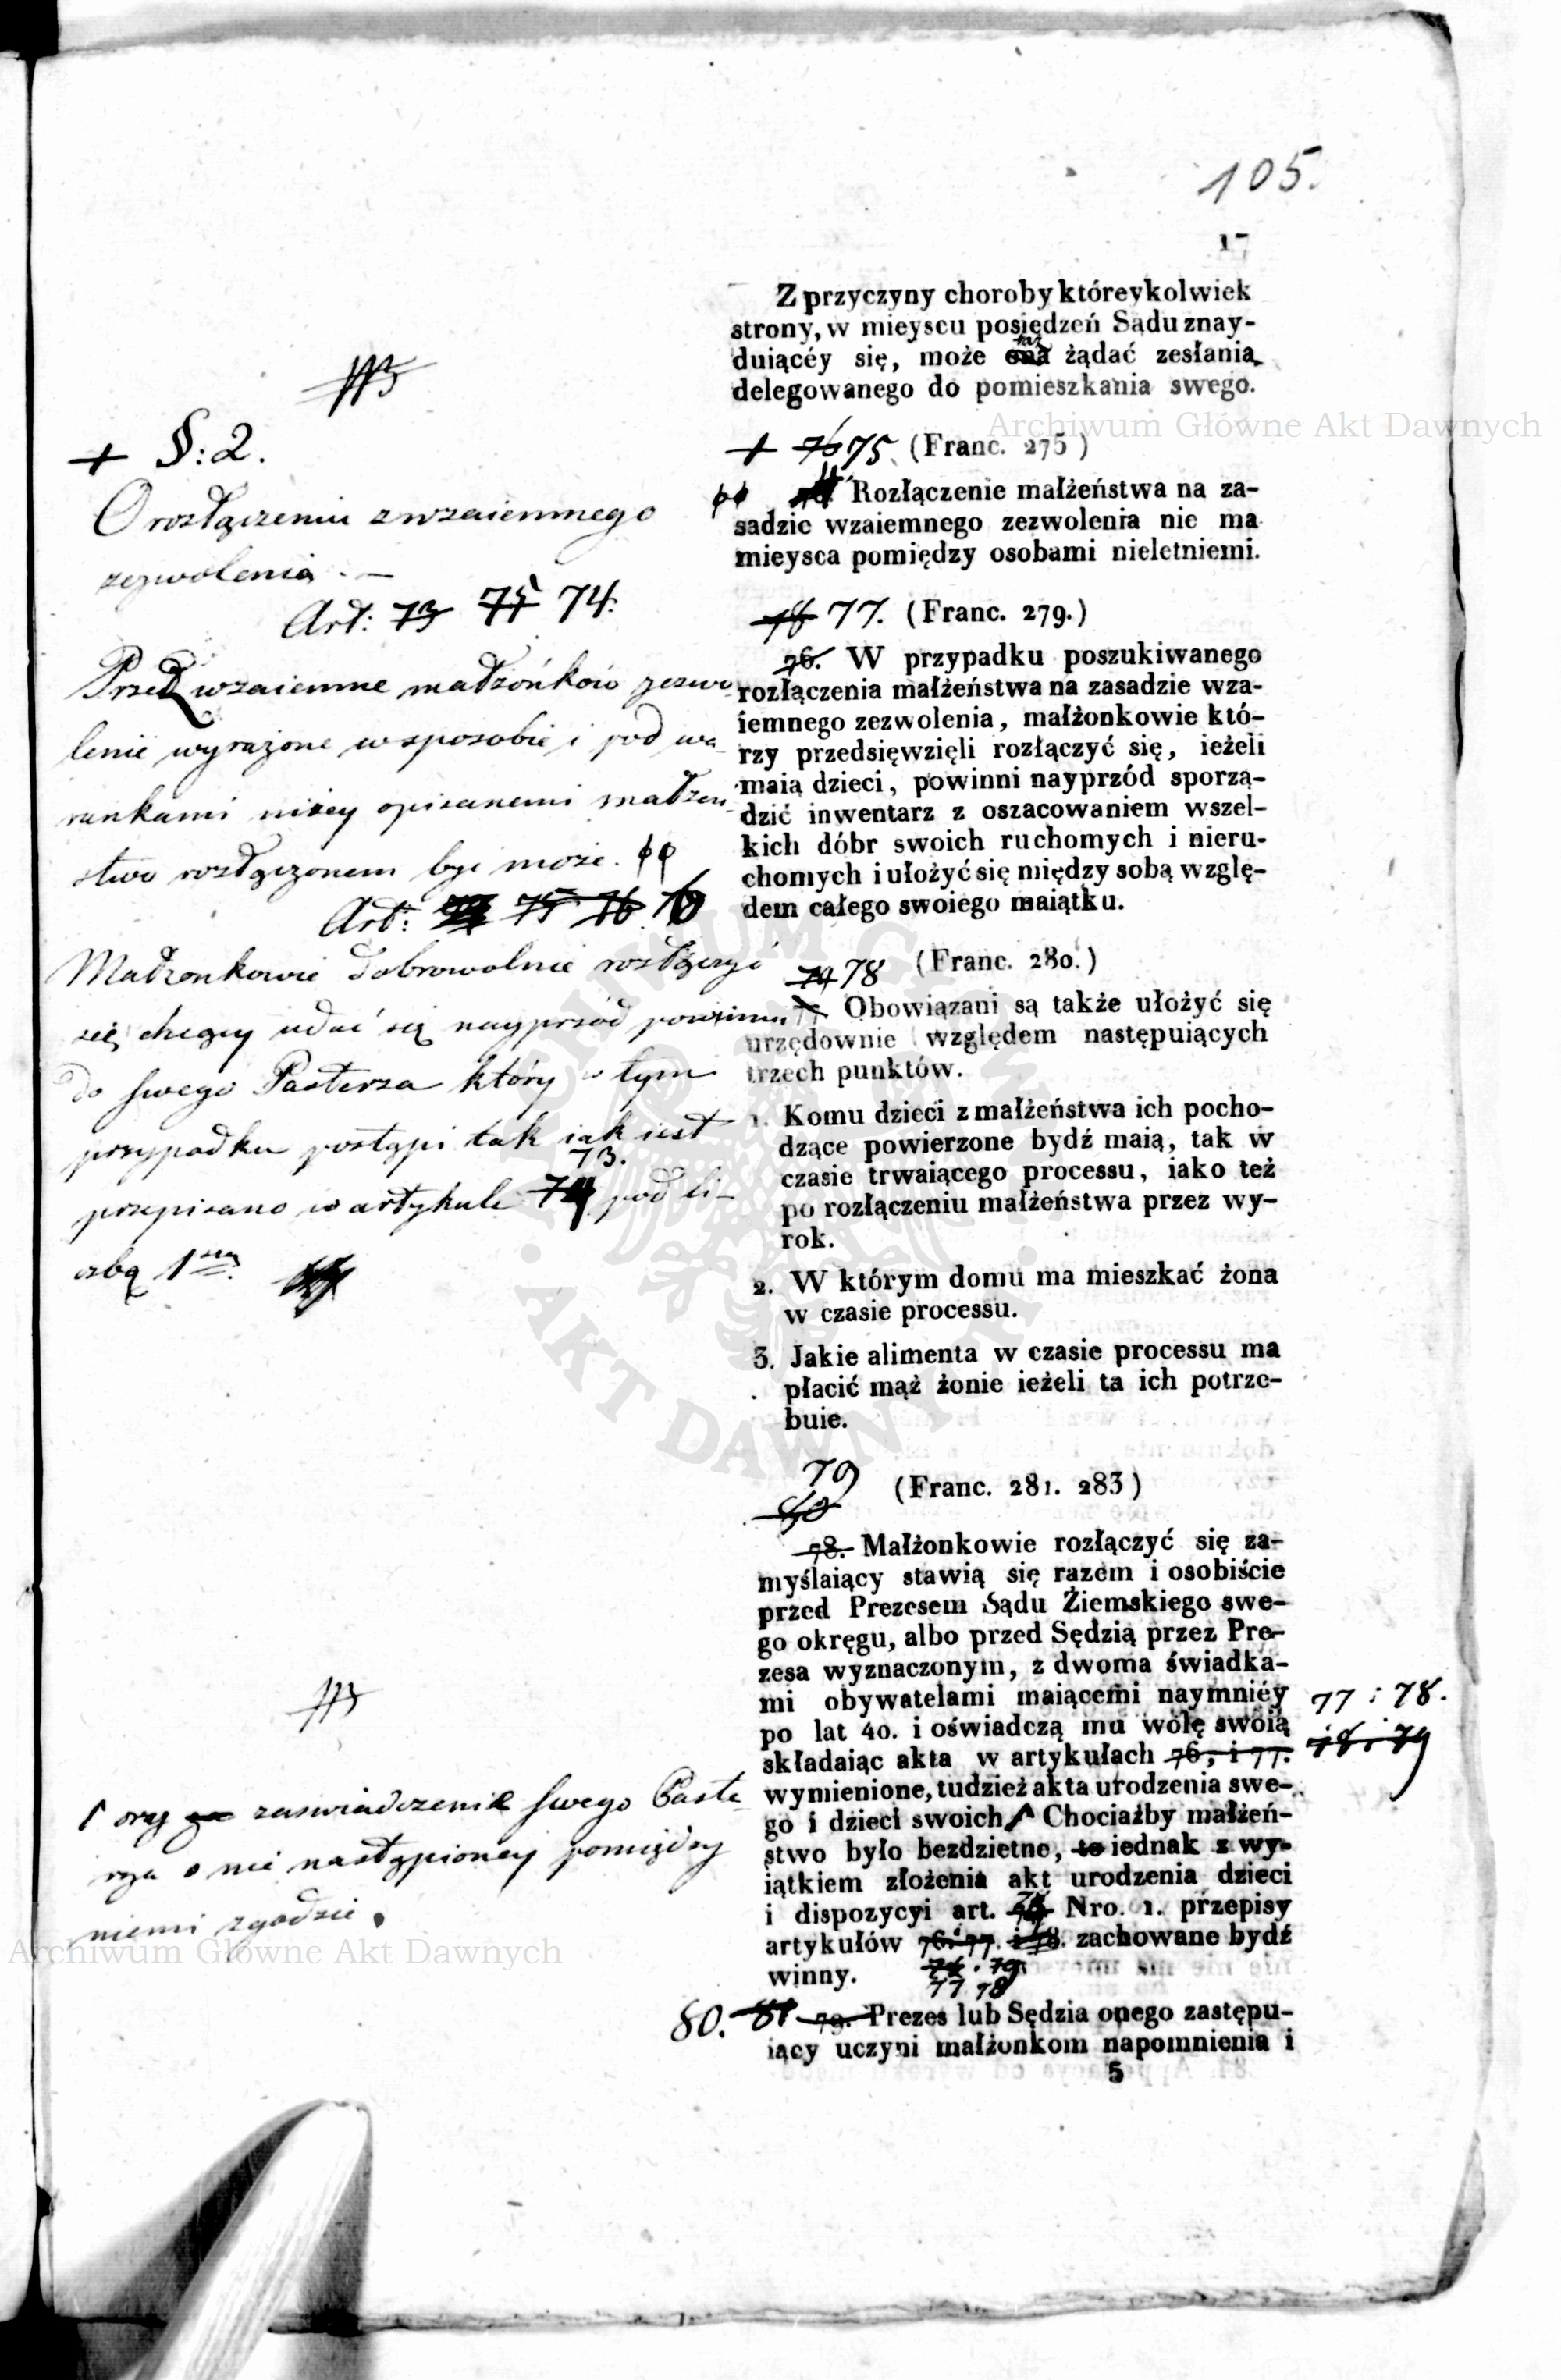 105.
17
Z przyczyny choroby któreykolwiek
strony, w mieyscu posiedzeń Sądu znay-
duiącéy się, może ona żądać zesłania
delegowanego do pomieszkania swego.
Archiwum Główne Akt Dawnych
+ 76 75 (Franc. 275)
Rozłączenie małżeństwa na za-
sadzie wzaiemnego zezwolenia nie ma
mieysca pomiędzy osobami nieletniemi.
78 77. (Franc. 279.)
76. W przypadku poszukiwanego
rozłączenia małżeństwa na zasadzie wza-
iemnego zezwolenia, małżonkowie któ-
rzy przedsięwzięli rozłączyć się, ieżeli
maią dzieci, powinni nayprzód sporzą-
dzić inwentarz z oszacowaniem wszel-
kich dóbr swoich ruchomych i nieru-
chomych i ułożyć się między sobą wzglę-
dem całego swoiego maiątku.
79 78 (Franc. 280.)
77 Obowiązani są także ułożyć się
urzędownie względem następuiących
trzech punktów.
1. Komu dzieci z małżeństwa ich pocho-
dzące powierzone bydź maią, tak w
czasie trwaiącego processu, iako też
po rozłączeniu małżeństwa przez wy-
rok.
2. W którym domu ma mieszkać żona
w czasie processu.
3. Jakie alimenta w czasie processu ma
płacić mąż żonie ieżeli ta ich potrze-
buie.
79
80 (Franc. 281. 283)
78. Małżonkowie rozłączyć się za-
myślaiący stawią się razem i osobiście
przed Prezesem Sądu Ziemskiego swe-
go okręgu, albo przed Sędzią przez Pre-
zesa wyznaczonym, z dwoma świadka-
mi obywatelami maiącemi naymniéy
po lat 40. i oświadczą mu wolę swoią
składaiąc akta w artykułach 76, i 77.
77 i 78.
78 i 79
wymienione, tudzież akta urodzenia swe-
go i dzieci swoich Chociażby małżeń-
stwo było bezdzietne, to iednak z wy-
iątkiem złożenia akt urodzenia dzieci
i dispozycyi art. Nro. 1. przepisy
artykułów 76. 77. i 78. zachowane bydź
winny.
77 78
80. 81 79. Prezes lub Sędzia onego zastępu-
iący uczyni małżonkom napomnienia i
5
+ §: 2.
O rozłączeniu z wzaiemnego
zezwolenia. —
Art: 73 75 74.
Przez wzaiemne małżonków zezwo-
lenie wyrażone w sposobie i pod wa-
runkami niżey opisanemi małżeń-
stwo rozłączonem być może.
Art: 75 76
Małżonkowie dobrowolnie rozłączyć
się chcący udać się nayprzód powinni
do swego Pasterza który w tym
przypadku postąpi tak iak iest
73.
przepisano w artykule 74 pod li-
czbą 1
oraz zaświadczenie swego Paste-
rza o nie nastąpioney pomiędzy
niemi zgodzie.
Archiwum Główne Akt Dawnych
ARCHIWUM GŁÓWNE AKT DAWNYCH